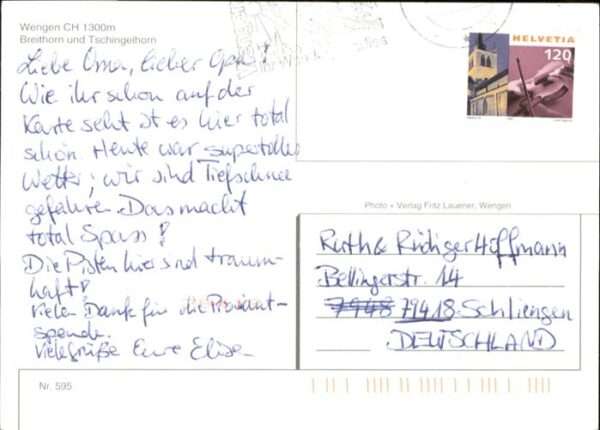 Wengen CH 1300m
Breithorn und Tschingelhorn
HELVETIA
120
Liebe Oma, lieber Opa!
Wie ihr schon auf der
Karte seht ist es hier total
schön. Heute war supertolles
Wetter; wir sind Tiefschnee
gefahren. Das macht
total Spass!
Die Pisten hier sind traum-
haft!
Vielen Dank für die Proviant-
spende.
Viele Grüße Eure Elisa
Photo + Verlag Fritz Lauener, Wengen
Ruth & Rüdiger Hoffmann
Bellingerstr. 14
7948 79418 Schliengen
DEUTSCHLAND
Nr. 595